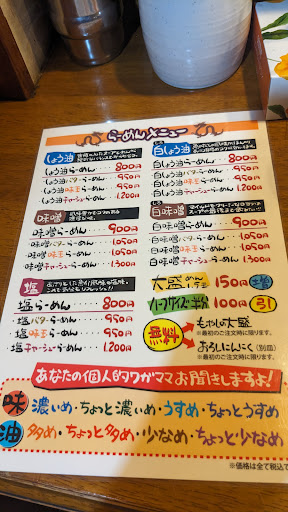 らーめんメニュー
しょう油
しょう油らーめん 800円
しょう油バターらーめん 950円
しょう油味玉らーめん 950円
しょう油チャーシューらーめん 1,200円
味噌
味噌らーめん 900円
味噌バターらーめん 1,050円
味噌味玉らーめん 1,050円
味噌チャーシューらーめん 1,300円
塩
塩らーめん 800円
塩バターらーめん 950円
塩味玉らーめん 950円
塩チャーシューらーめん 1,200円
白しょう油
白しょう油らーめん 800円
白しょう油バターらーめん 950円
白しょう油味玉らーめん 950円
白しょう油チャーシューらーめん 1,200円
白味噌
白味噌らーめん 900円
白味噌バターらーめん 1,050円
白味噌味玉らーめん 1,050円
白味噌チャーシューらーめん 1,300円
大盛 150円増
ハーフサイズ 100円引
無料
もやし大盛
※最初のご注文時に限ります。
おろしにんにく(別皿)
※最初のご注文時に限ります。
あなたの個人的ワガママお聞きしますよ!
味 濃いめ・ちょっと濃いめ・うすめ・ちょっとうすめ
油 多め・ちょっと多め・少なめ・ちょっと少なめ
※価格は全て税込で